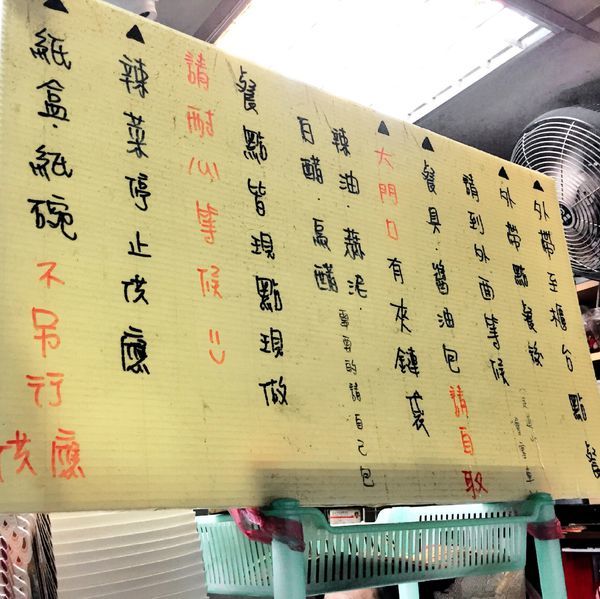 ▲外帶至櫃台點餐
▲外帶點餐後
請到外面等候
▲餐具.醬油包請自取
▲大門口有夾鏈袋
辣油.蒜泥.需要的請自己包
白醋.烏醋
餐點皆現點現做
請耐心等候 =)
▲辣菜停止供應
▲紙盒.紙碗不另行供應